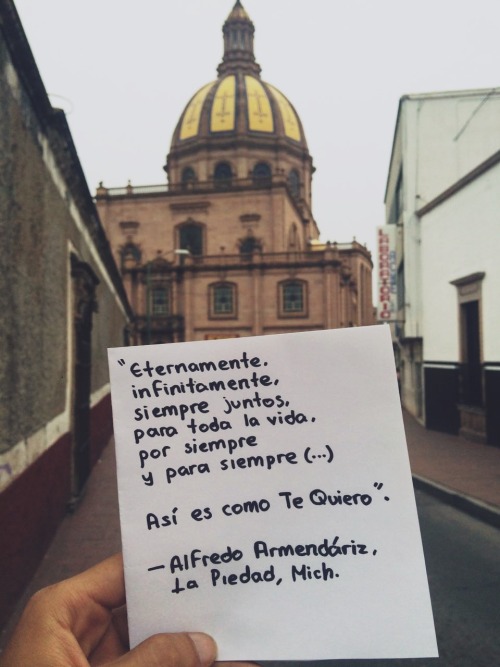 "Eternamente.
infinitamente,
siempre juntos,
para toda la vida,
por siempre
y para siempre (...)
Así es como Te Quiero".
—Alfredo Armendáriz,
La Piedad, Mich.
LABORATORIO